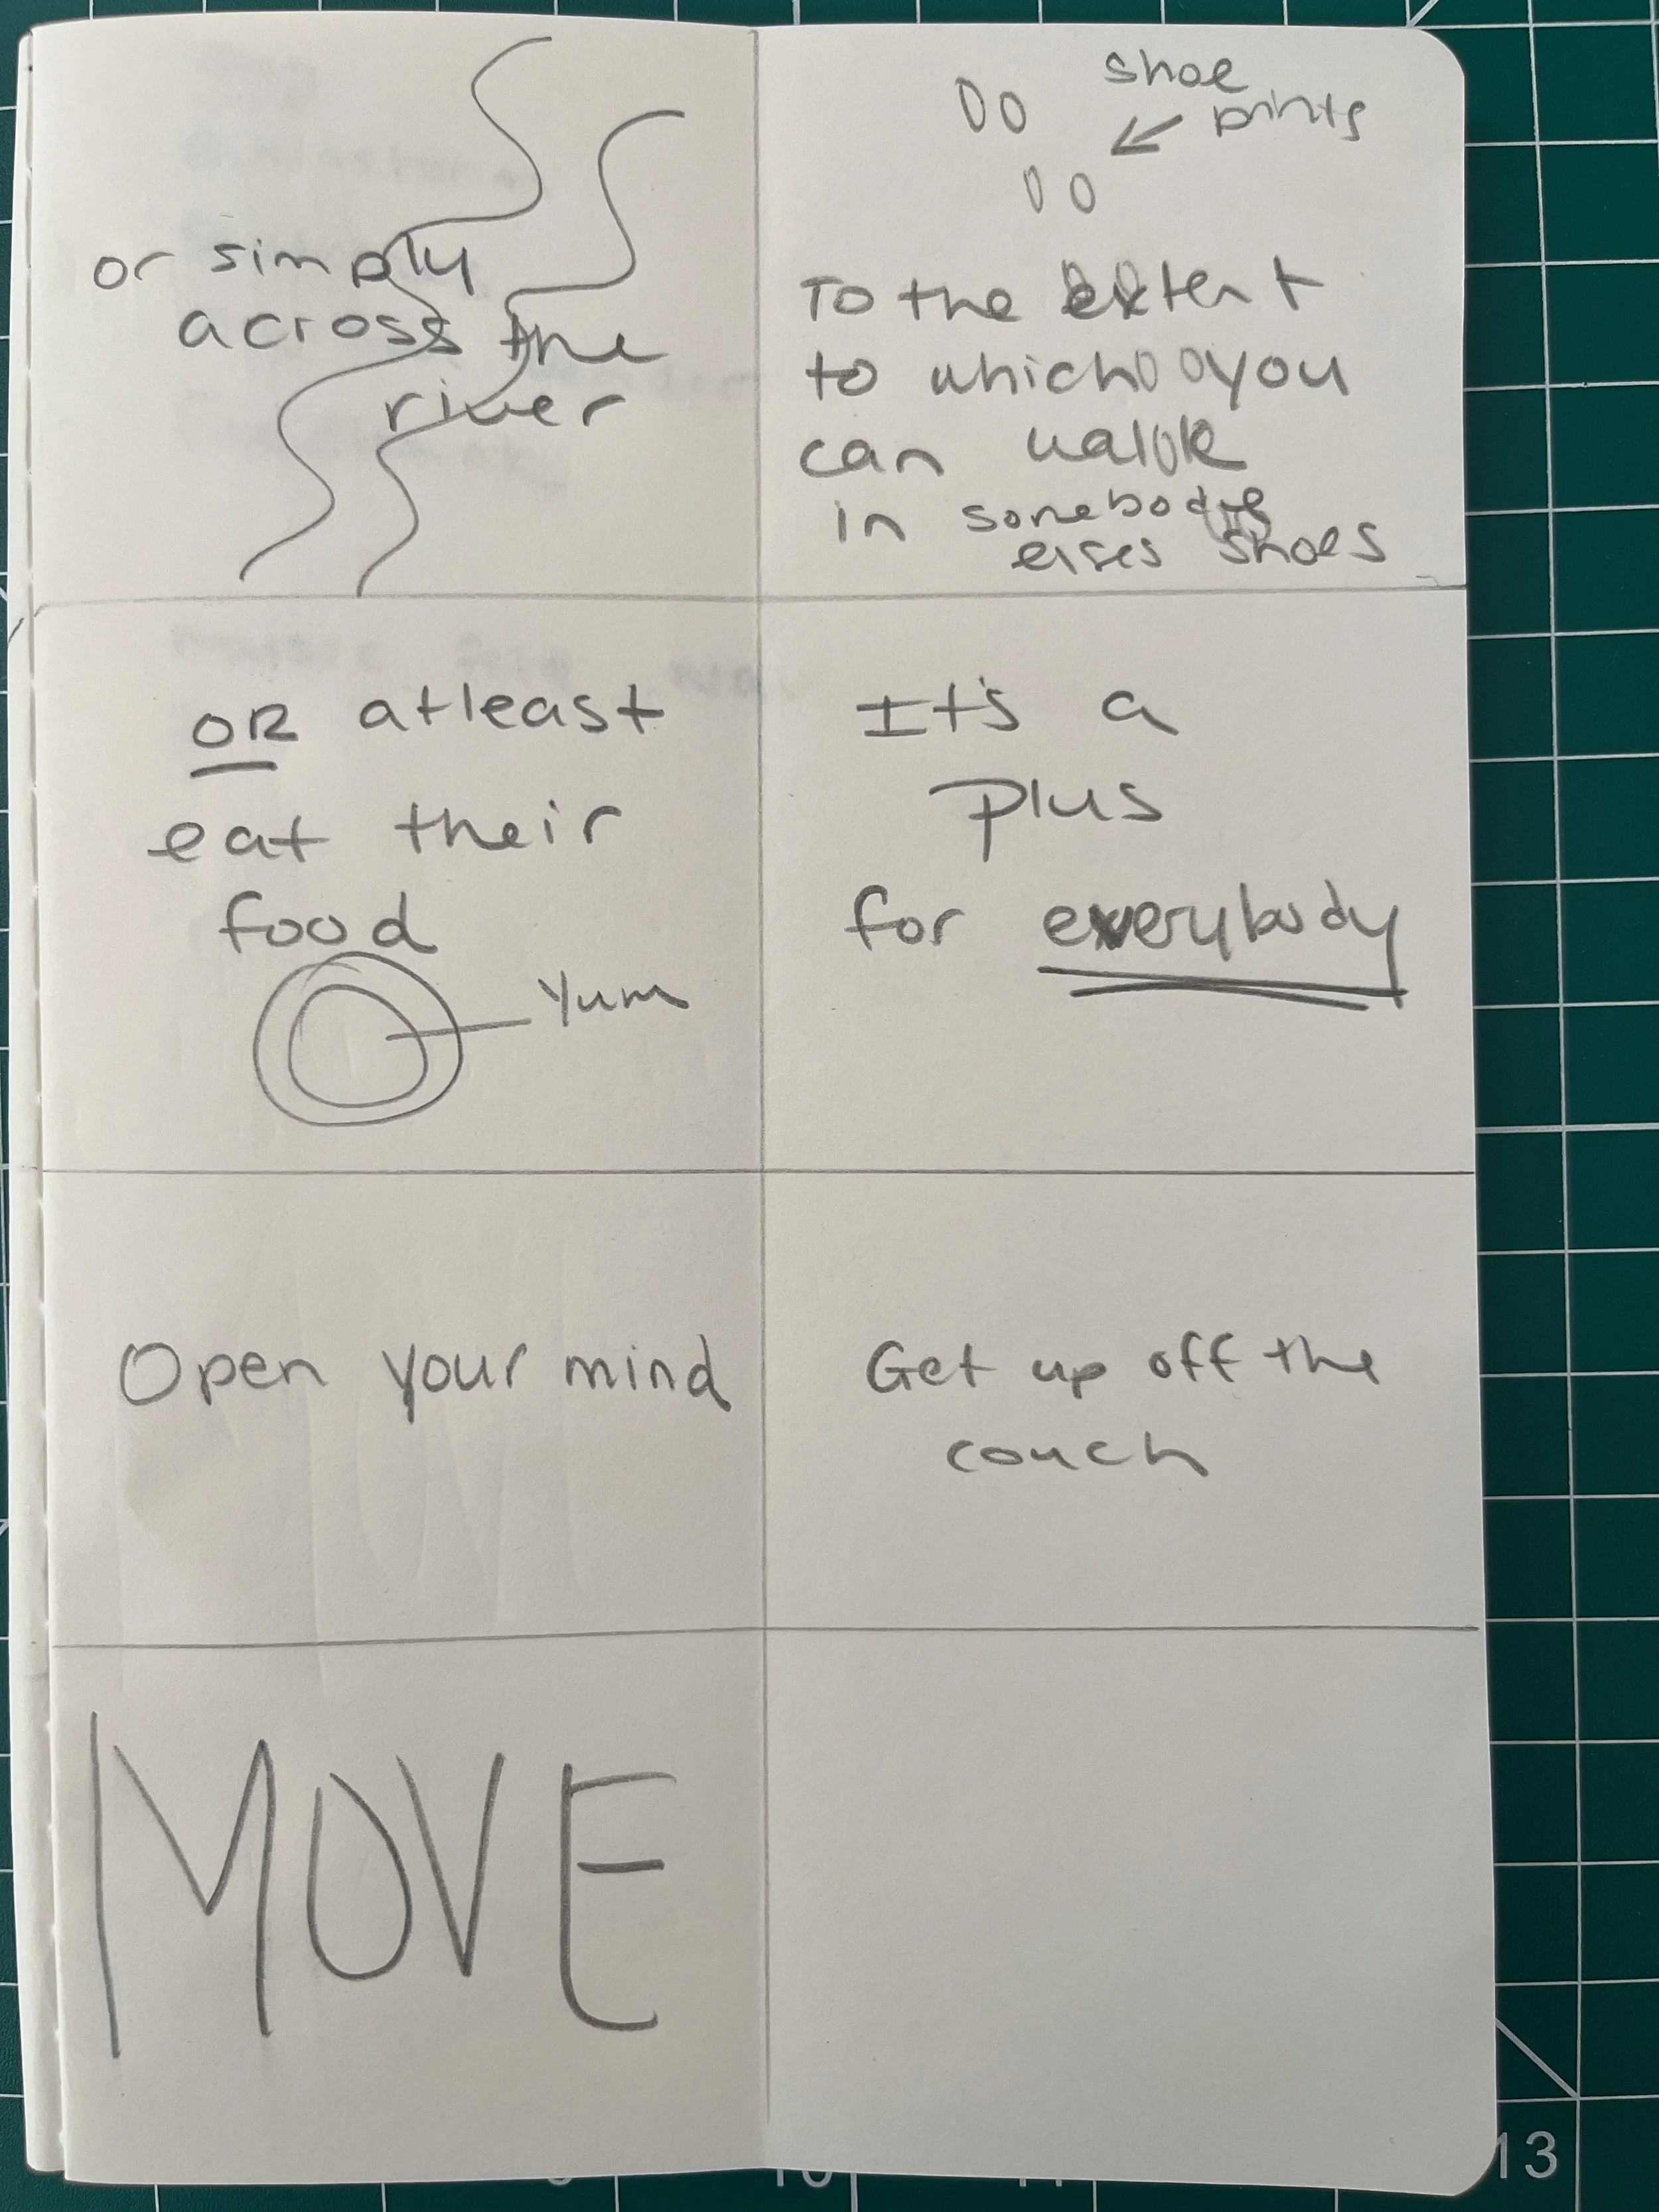 or simply
across the
river
shoe
prints
To the extent
to which you
can walk
in somebody
elses shoes
OR atleast
eat their
food
Yum
It's a
plus
for everybody
Open your mind
Get up off the
couch
MOVE
13